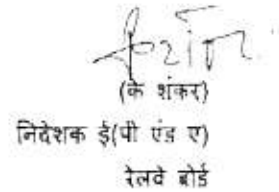 (के शंकर)
निदेशक ई(पी एंड ए)
रेलवे बोर्ड